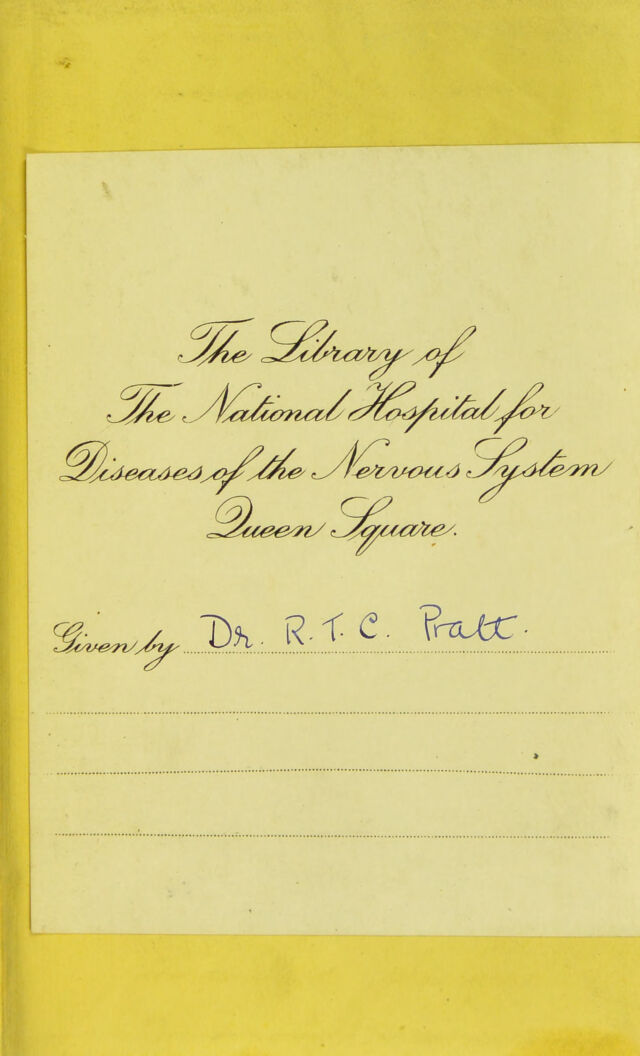 The Library of
The National Hospital for
Diseases of the Nervous System
Queen Square.
Given by Dr. R. T. C. Pratt.